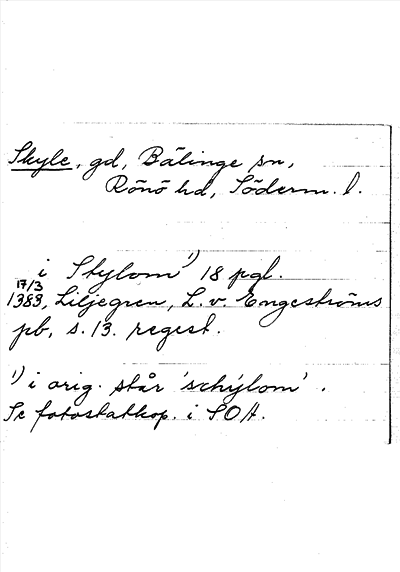 Skyle, gd, Bälinge sn,
Rönö hd, Söderm. l.
i Skylom 1) 18 pgl.
17/3
1383, Liljegren, L. v. Engeströms
pb, s. 13. regest.
1) i orig. står 'schÿlom'.
Se fotostatkop. i SOA.